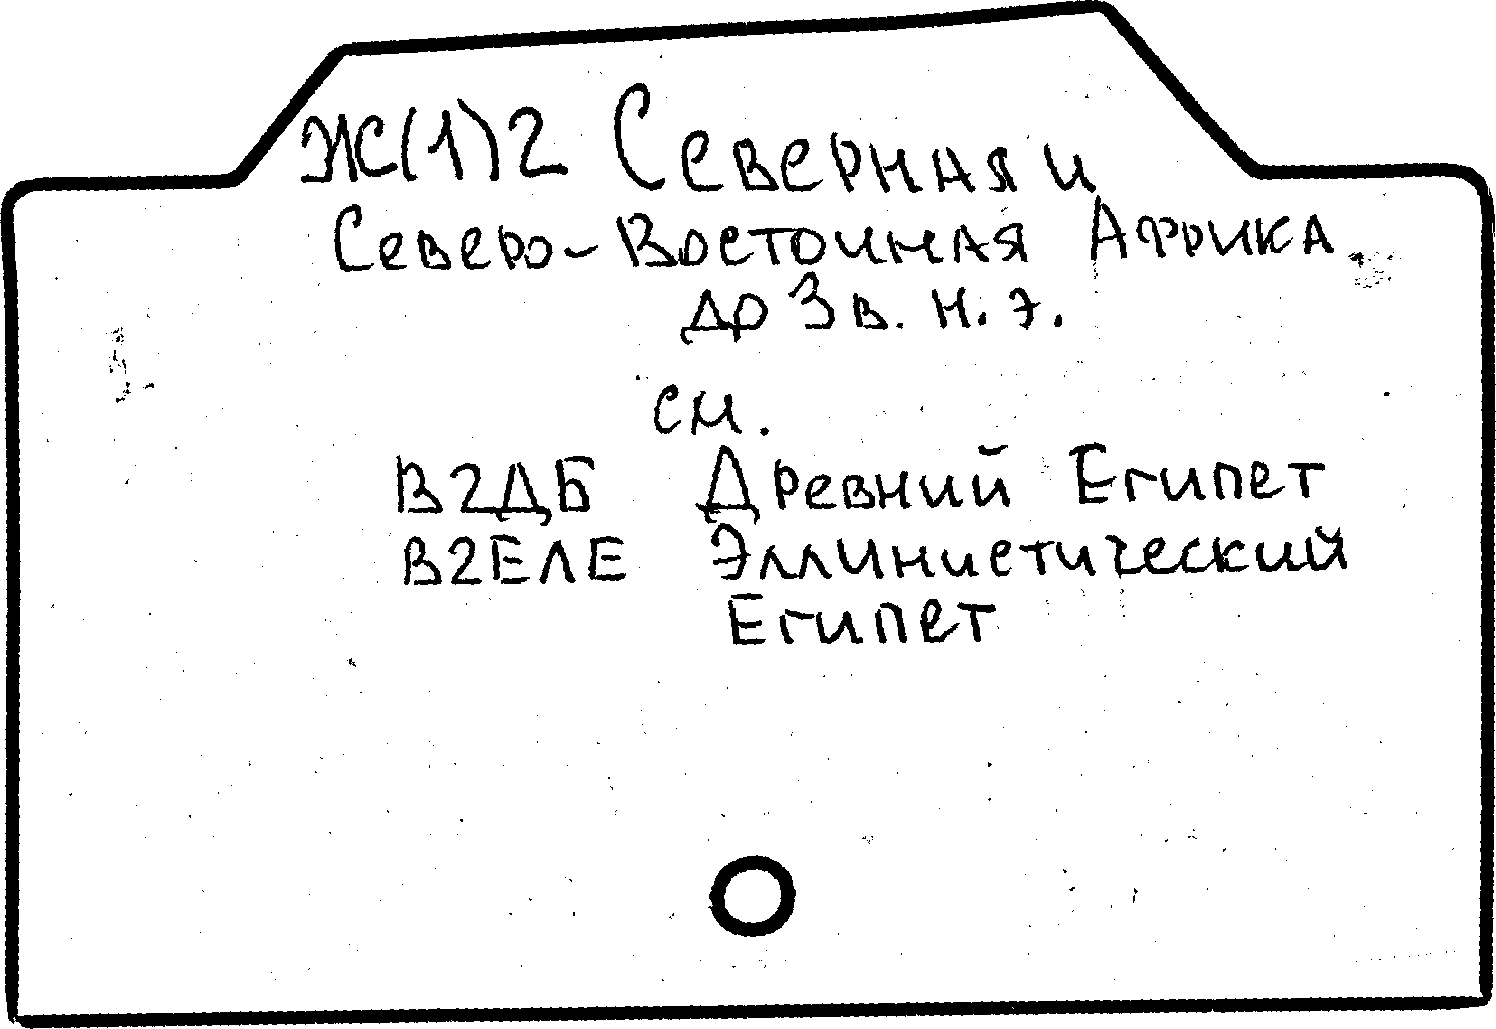 Ж(1)2 Северная и
Северо-Восточная Африка
до 3 в. н. э.
см.
В2ДБ Древний Египет
В2ЕЛЕ Эллинистический
Египет